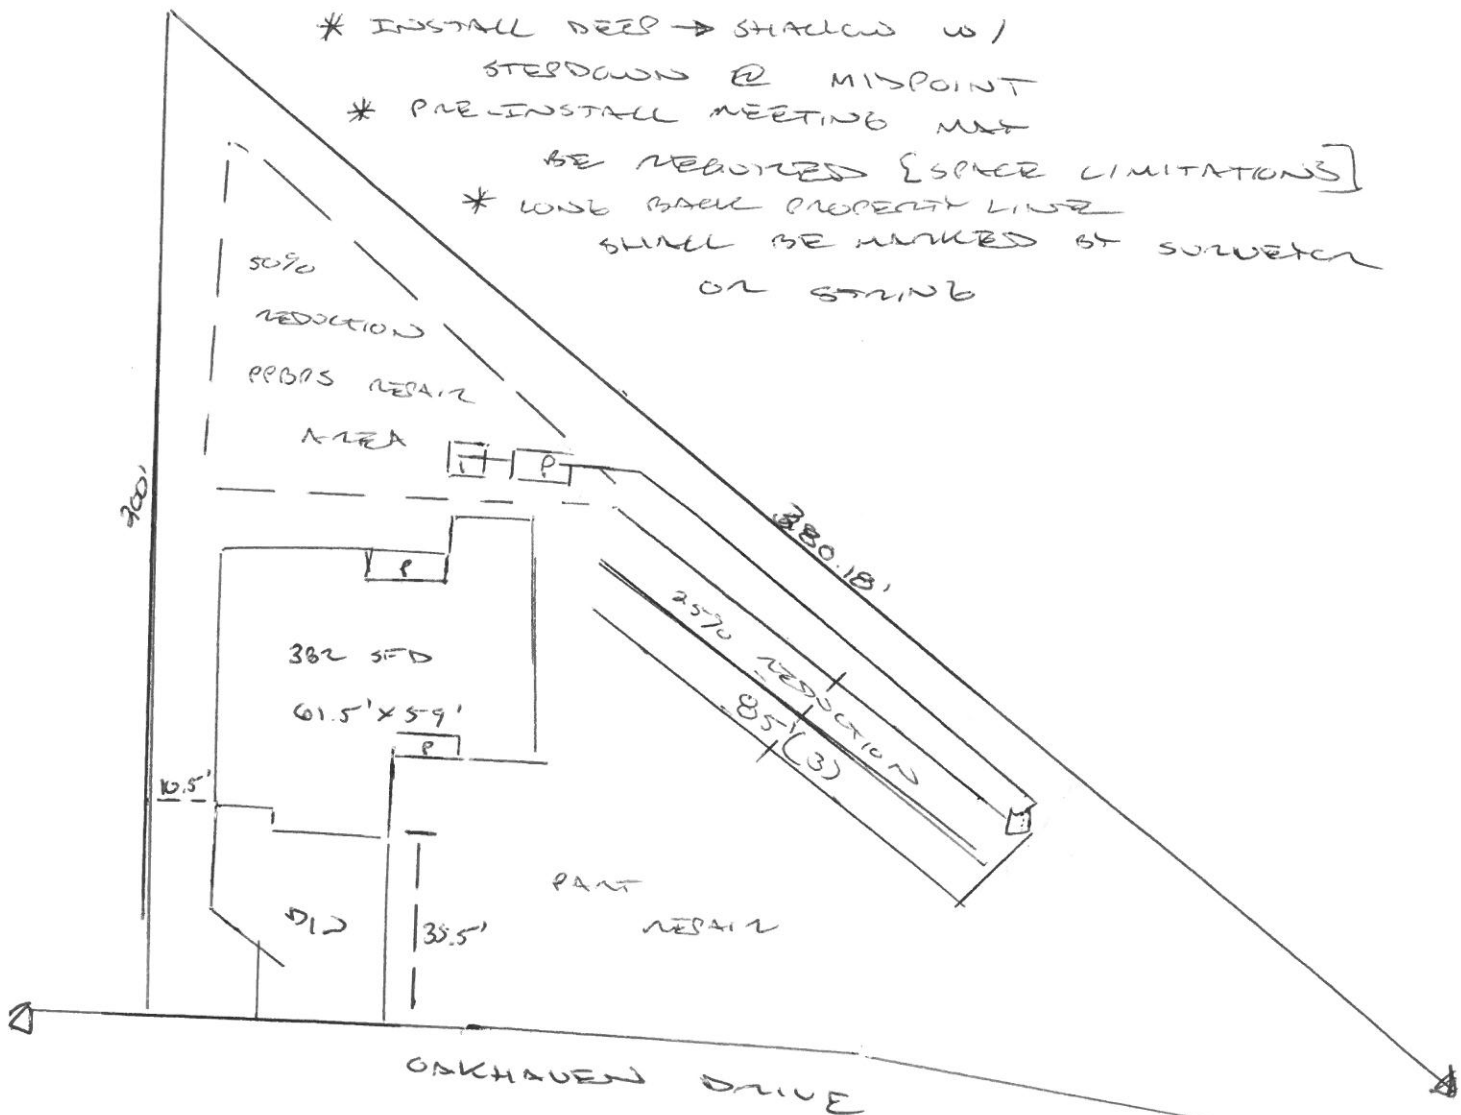 * INSTALL DEEP → SHALLOW W/
STEPDOWN @ MIDPOINT
* PRE-INSTALL MEETING MAY
BE REQUIRED [SPACE LIMITATIONS]
* LONG BACK PROPERTY LINE
SHALL BE MARKED BY SURVEYOR
OR STRING
50%
REDUCTION
PPBPS REPAIR
AREA
T
P
300'
380.18'
P
3BR SFD
61.5' X 59'
P
25% REDUCTION
85' (3)
10.5'
D/W
35.5'
PART
REPAIR
OAKHAVEN DRIVE